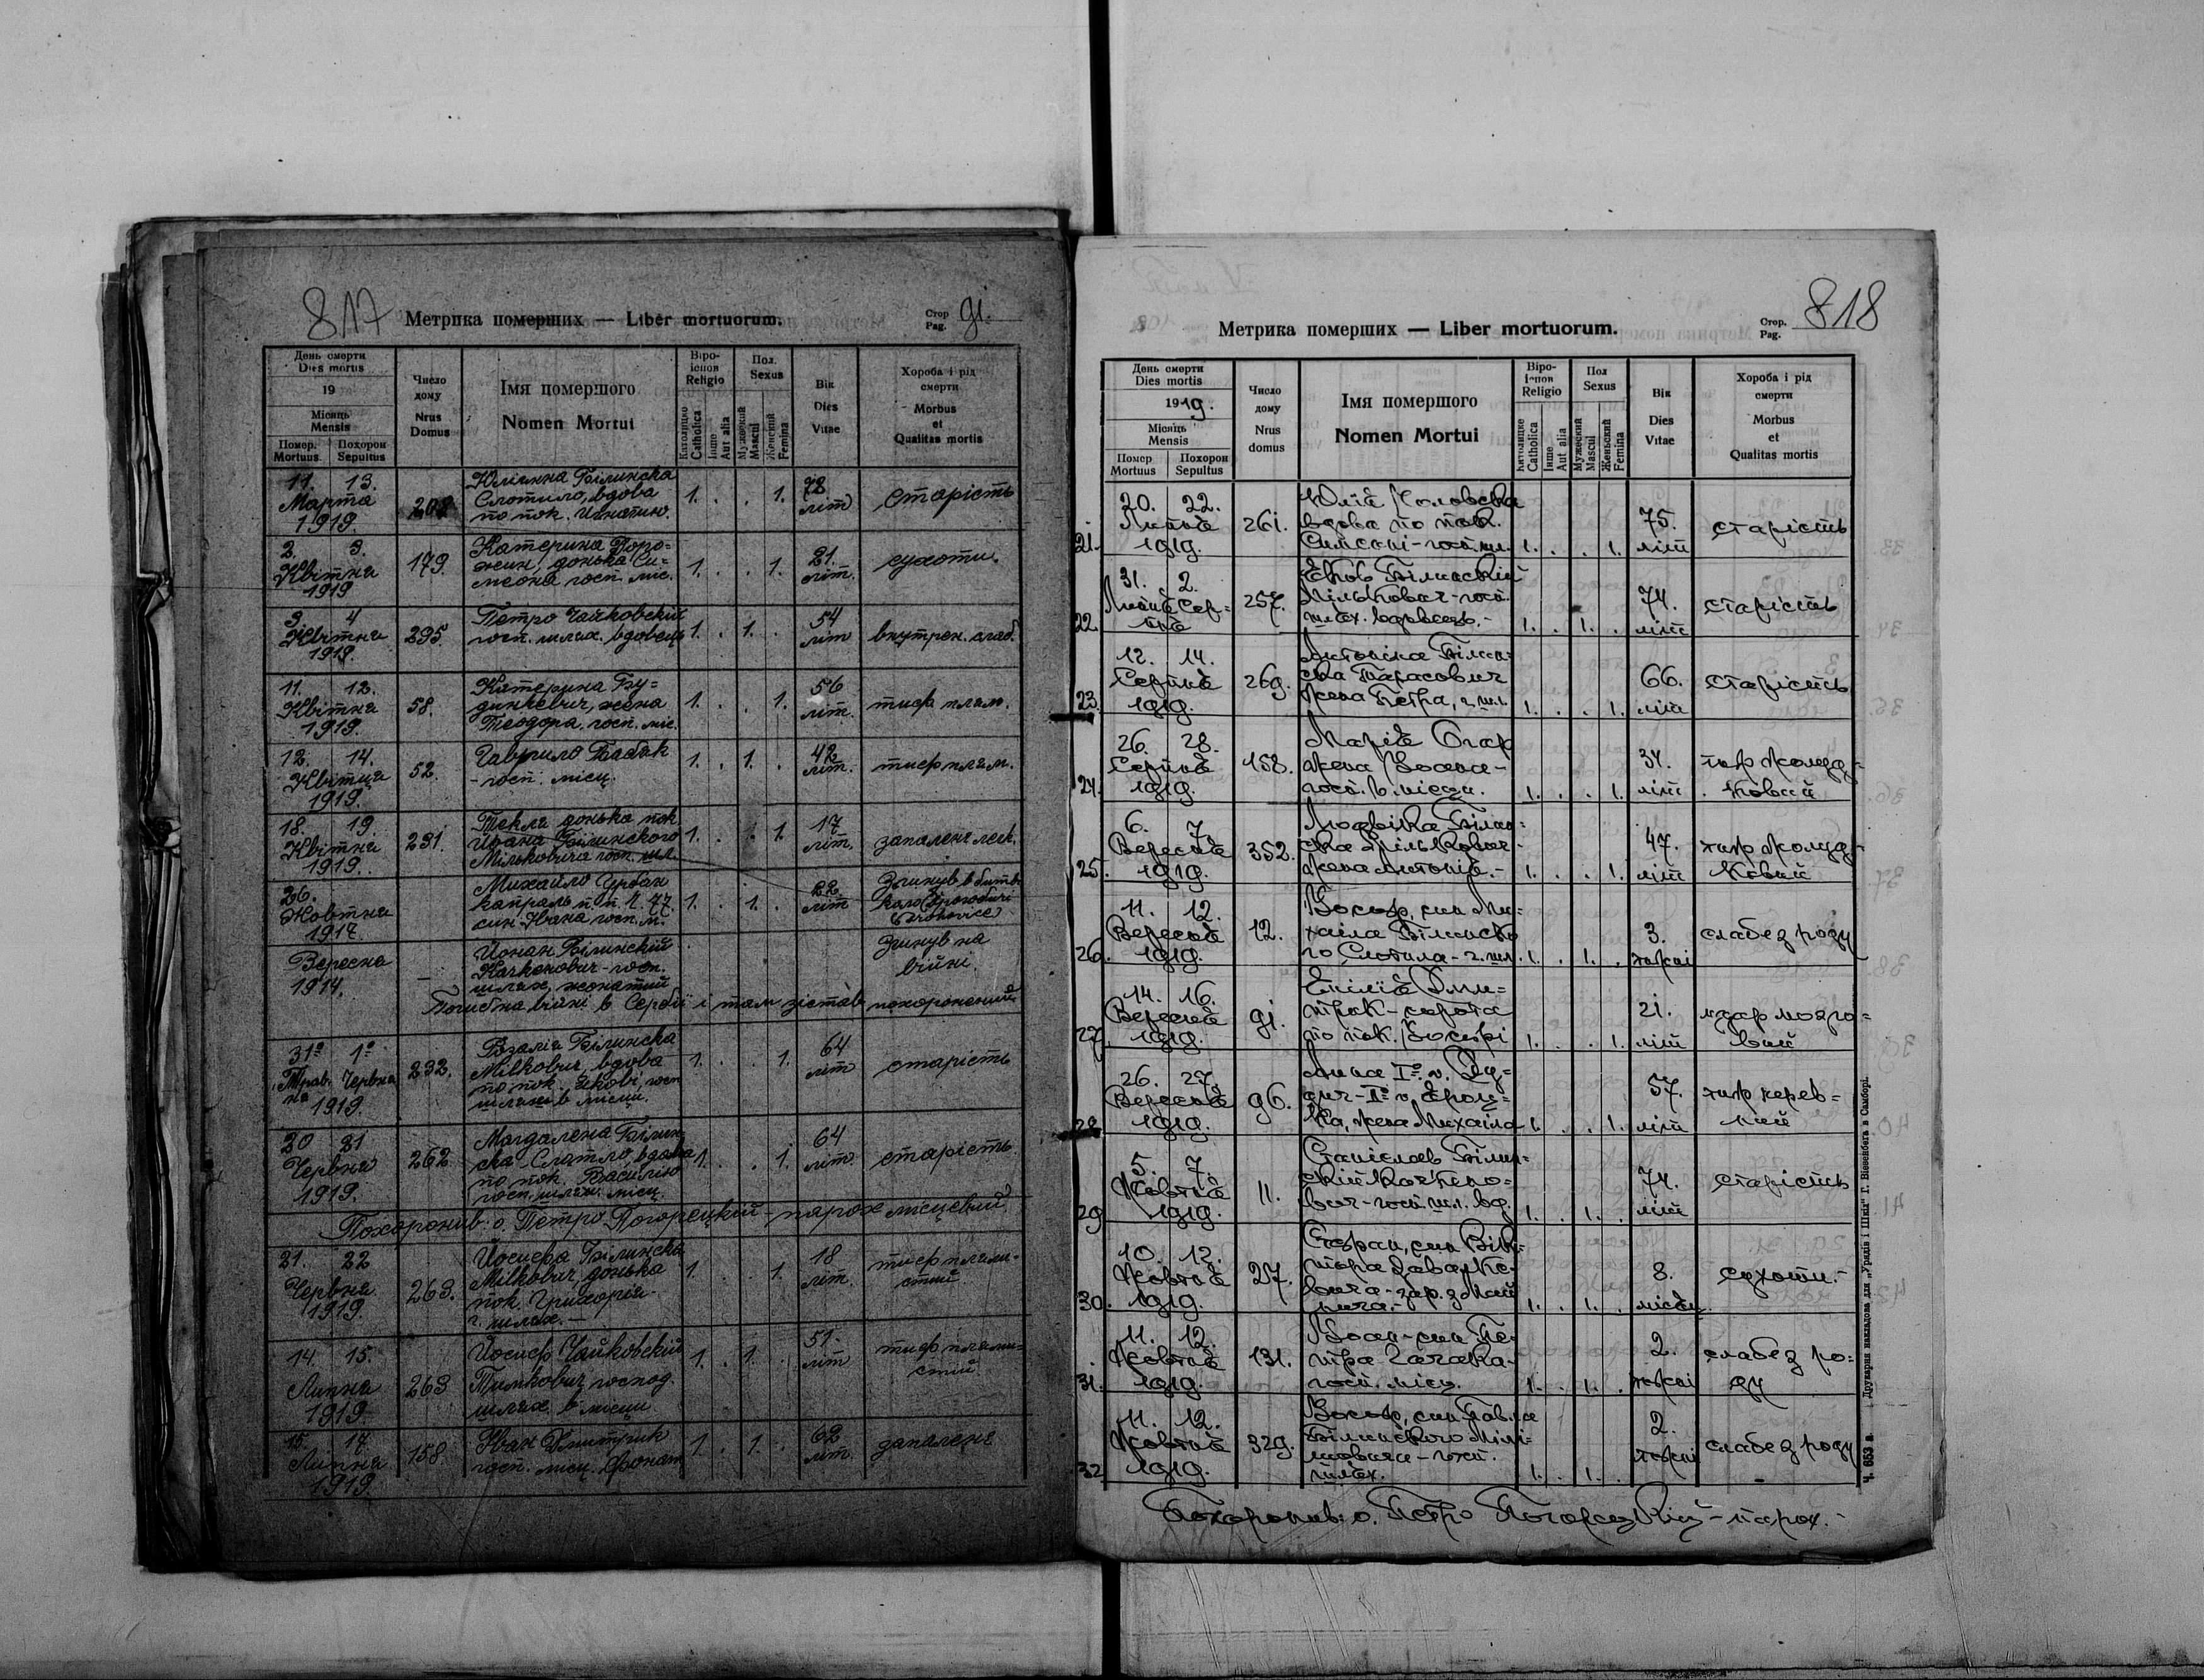 817
Метрика померших — Liber mortuorum.
Стор
Pag.
91.
День смерти
Dies mortus
19
Місяць
Mensis
Помер.
Mortuus.
Похорон
Sepultus
Число
дому
Nrus
Domus
Імя помершого
Nomen Mortui
Віро-
іспов
Religio
Католицке
Catholica
Інше
Aut alia
Пол.
Sexus
Мужеский
Mascul
Женский
Femina
Вік
Dies
Vitae
Хороба і рід
смерти
Morbus
et
Qualitas mortis
11. 13.
Марта
1919.
208
Юліянна Білинска
Слотило, вдова
по пок. Игнатию.
1. . . 1.
78
літ
старість
2. 3.
Квітня
1919
179.
Катерина Доро-
жин, донька Си-
меона госп. міс.
1. . . 1.
21.
літ.
сухоти.
3. 4
Квітня
1919.
295.
Петро Чайковский
госп. шлях. вдовець
1. . 1. .
54
літ
внутрен. слаб.
11. 12.
Квітня
1919.
58.
Катерина Бу-
динкевич, жена
Теодора, госп. міс.
1. . . 1.
56
літ.
тиф плям.
12. 14.
Квітня
1919.
52.
Гаврило Бабяк
- госп. місц.
1. . 1. .
42
літ.
тиф плям.
18. 19.
Квітня
1919.
231.
Текля донька пок
Ивана Білинского
Мільковича госп. шл.
1. . . 1.
17
літ.
запаленя легк.
26.
Жовтня
1917.
Михайло Урбан
капраль п. п. ч. 77.
син Івана госп. м.
1. . 1. .
22
літ
Згинув в битві
коло
Вересня
1914.
—
Йоган Білинский
Кочкенович - госп.
шлях, жонатий
згинув на
війні.
Погиб на війні в Сербії і там зістав похоронений.
31º 1º
Трав- Червня
ня
1919.
232.
Розалія Білинска
Milkoвич, вдова
по пок. Якові, госп
шлях. в місци.
1. . . 1.
64
літ
старість
20 21
Червня
1919.
262
Магдалена Білин-
ска Слотило, вдова
по пок. Василию
госп. шлях. місц.
1. . . 1.
64
літ
старість.
Похоронив: о. Петро Погорецкий - парох місцевий.
21. 22
Червня
1919.
263.
Йосифа Білинска
Milkoвич, донька
пок. Григорія -
г. шлях. —
1. . . 1.
18
літ.
тиф плями-
стий
14. 15.
Липня
1919.
263
Йосиф Чайковский
Тимкович господ.
шлях. в місци
1. . 1. .
51.
літ
тиф плями-
стий
15. 17
Липня
1919.
158.
Іван Дмитрик
госп. місц. жонат
1. . 1. .
62
літ.
запаленя
Метрика померших — Liber mortuorum.
Стор.
Pag.
818
День смерти
Dies mortis
1919.
Місяць
Mensis
Помер
Mortuus
Похорон
Sepultus
Число
дому
Nrus
domus
Імя помершого
Nomen Mortui
Віро-
іспов
Religio
Католицке
Catholica
Інше
Aut alia
Пол
Sexus
Мужеский
Mascul
Женьский
Femina
Вік
Dies
Vitae
Хороба і рід
смерти
Morbus
et
Qualitas mortis
21.
20. 22.
Липня
1919.
261.
Юлія
вдова по пок.
1. . . 1.
75.
літ
старість
22.
31. 2.
Липня Сер-
пня
257.
Яков Білинский
Мількович - госп.
шлях. вдовець. -
1. . 1. .
74.
літ
старість
23.
12. 14.
Серпня
1919.
269.
Антоніна Білин-
ска Тарасович
жена Петра, г. шл.
1. . . 1.
66.
літ
старість
24.
26. 28.
Серпня
1919.
158.
Марія
жена Йоана -
госп. в місци.
1. . . 1.
34.
літ
тиф жолуд-
ковий
25.
6. 7.
Вересня
1919.
352.
Людвіка Білин-
ска Мількович -
жена Антонія. -
1. . . 1.
47.
літ
тиф жолуд-
ковий
26.
11. 12.
Вересня
1919.
12.
Йосиф, син Ми-
хаила Білинско
го Слотила - г. шл.
1. . 1. .
3.
тижні
слабез роду
27.
14. 16.
Вересня
1919.
91.
Емілія Дми-
трик - сирота
по пок. Йосифі
1. . . 1.
21.
літ
удар мозго-
вий
28.
26. 27.
Вересня
1919.
96.
Анна Iº. v.
IIº v.
жена Михаіла
1. . . 1.
57.
літ
тиф черев-
ний
29.
5. 7.
Жовтня
1919.
11.
Станіслав Білин-
ский Кочкено-
вич - госп. шл. вд.
1. . 1. .
74.
літ
старість
30.
10. 12.
Жовтня
1919.
27.
Стефан, син Вік-
тора
1. . 1. .
8.
місяц
сухоти. -
31.
11. 12.
Жовтня
1919.
131.
Йоан - син Пе-
тра
госп. місц.
1. . 1. .
2.
тижні
слабез ро-
ду
32
11. 12.
Жовтня
1919.
329.
Йосиф, син Павла
Білинского
госп.
шлях.
1. . 1. .
2.
тижні
слабез роду
Похоронив: о. Петро Погорецкий - парох. -
Ч. 653 в. Друкарня накладова для „Урядів і Шкіл" Г. Візенберга в Самборі.